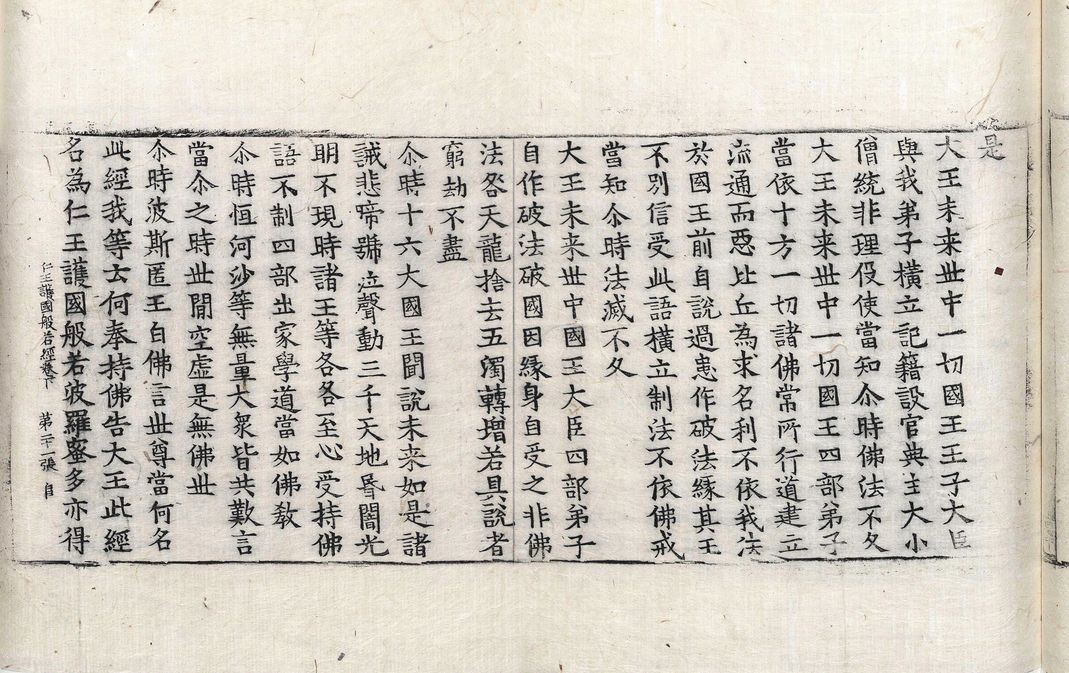 是
大王未来世中一切國王王子大臣
與我弟子橫立記籍設官典主大小
僧統非理役使當知尒時佛法不久
大王未来世中一切國王四部弟子
當依十方一切諸佛常所行道建立
流通而惡比丘為求名利不依我法
於國王前自說過患作破法緣其王
不別信受此語橫立制法不依佛戒
當知尒時法滅不久
大王未来世中國王大臣四部弟子
自作破法破國因緣身自受之非佛
法咎天龍捨去五濁轉增若具說者
窮劫不盡
尒時十六大國王聞說未来如是諸
誡悲啼號泣聲動三千天地昬闇光
明不現時諸王等各各至心受持佛
語不制四部出家學道當如佛敎
尒時恒河沙等無量大衆皆共歎言
當尒之時世閒空虛是無佛世
尒時波斯匿王白佛言世尊當何名
此經我等云何奉持佛告大王此經
名為仁王護國般若波羅蜜多亦得
仁王護國般若經卷下 第二十一張 自